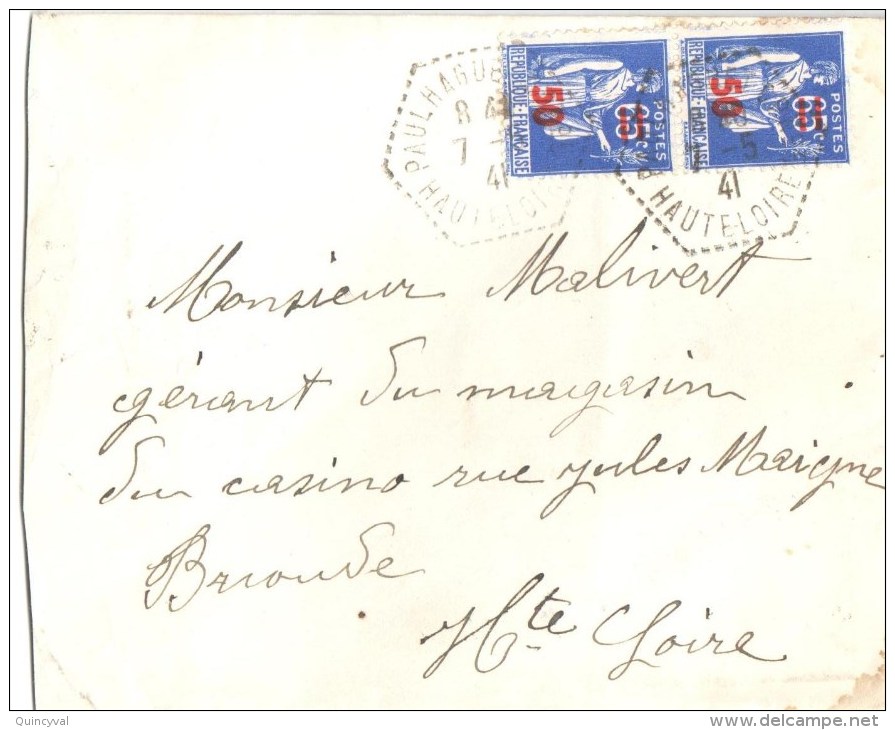 PAULHAGUE
8 4
7 -
41
HAUTE LOIRE
RÉPUBLIQUE FRANÇAISE
50
65c
POSTES
RÉPUBLIQUE FRANÇAISE
50
65c
POSTES
-5
41
HAUTE LOIRE
Monsieur Malivert
gérant du magasin
du casino rue Jules Maigne
Brioude
Hte Loire
Quincyval
www.delcampe.net